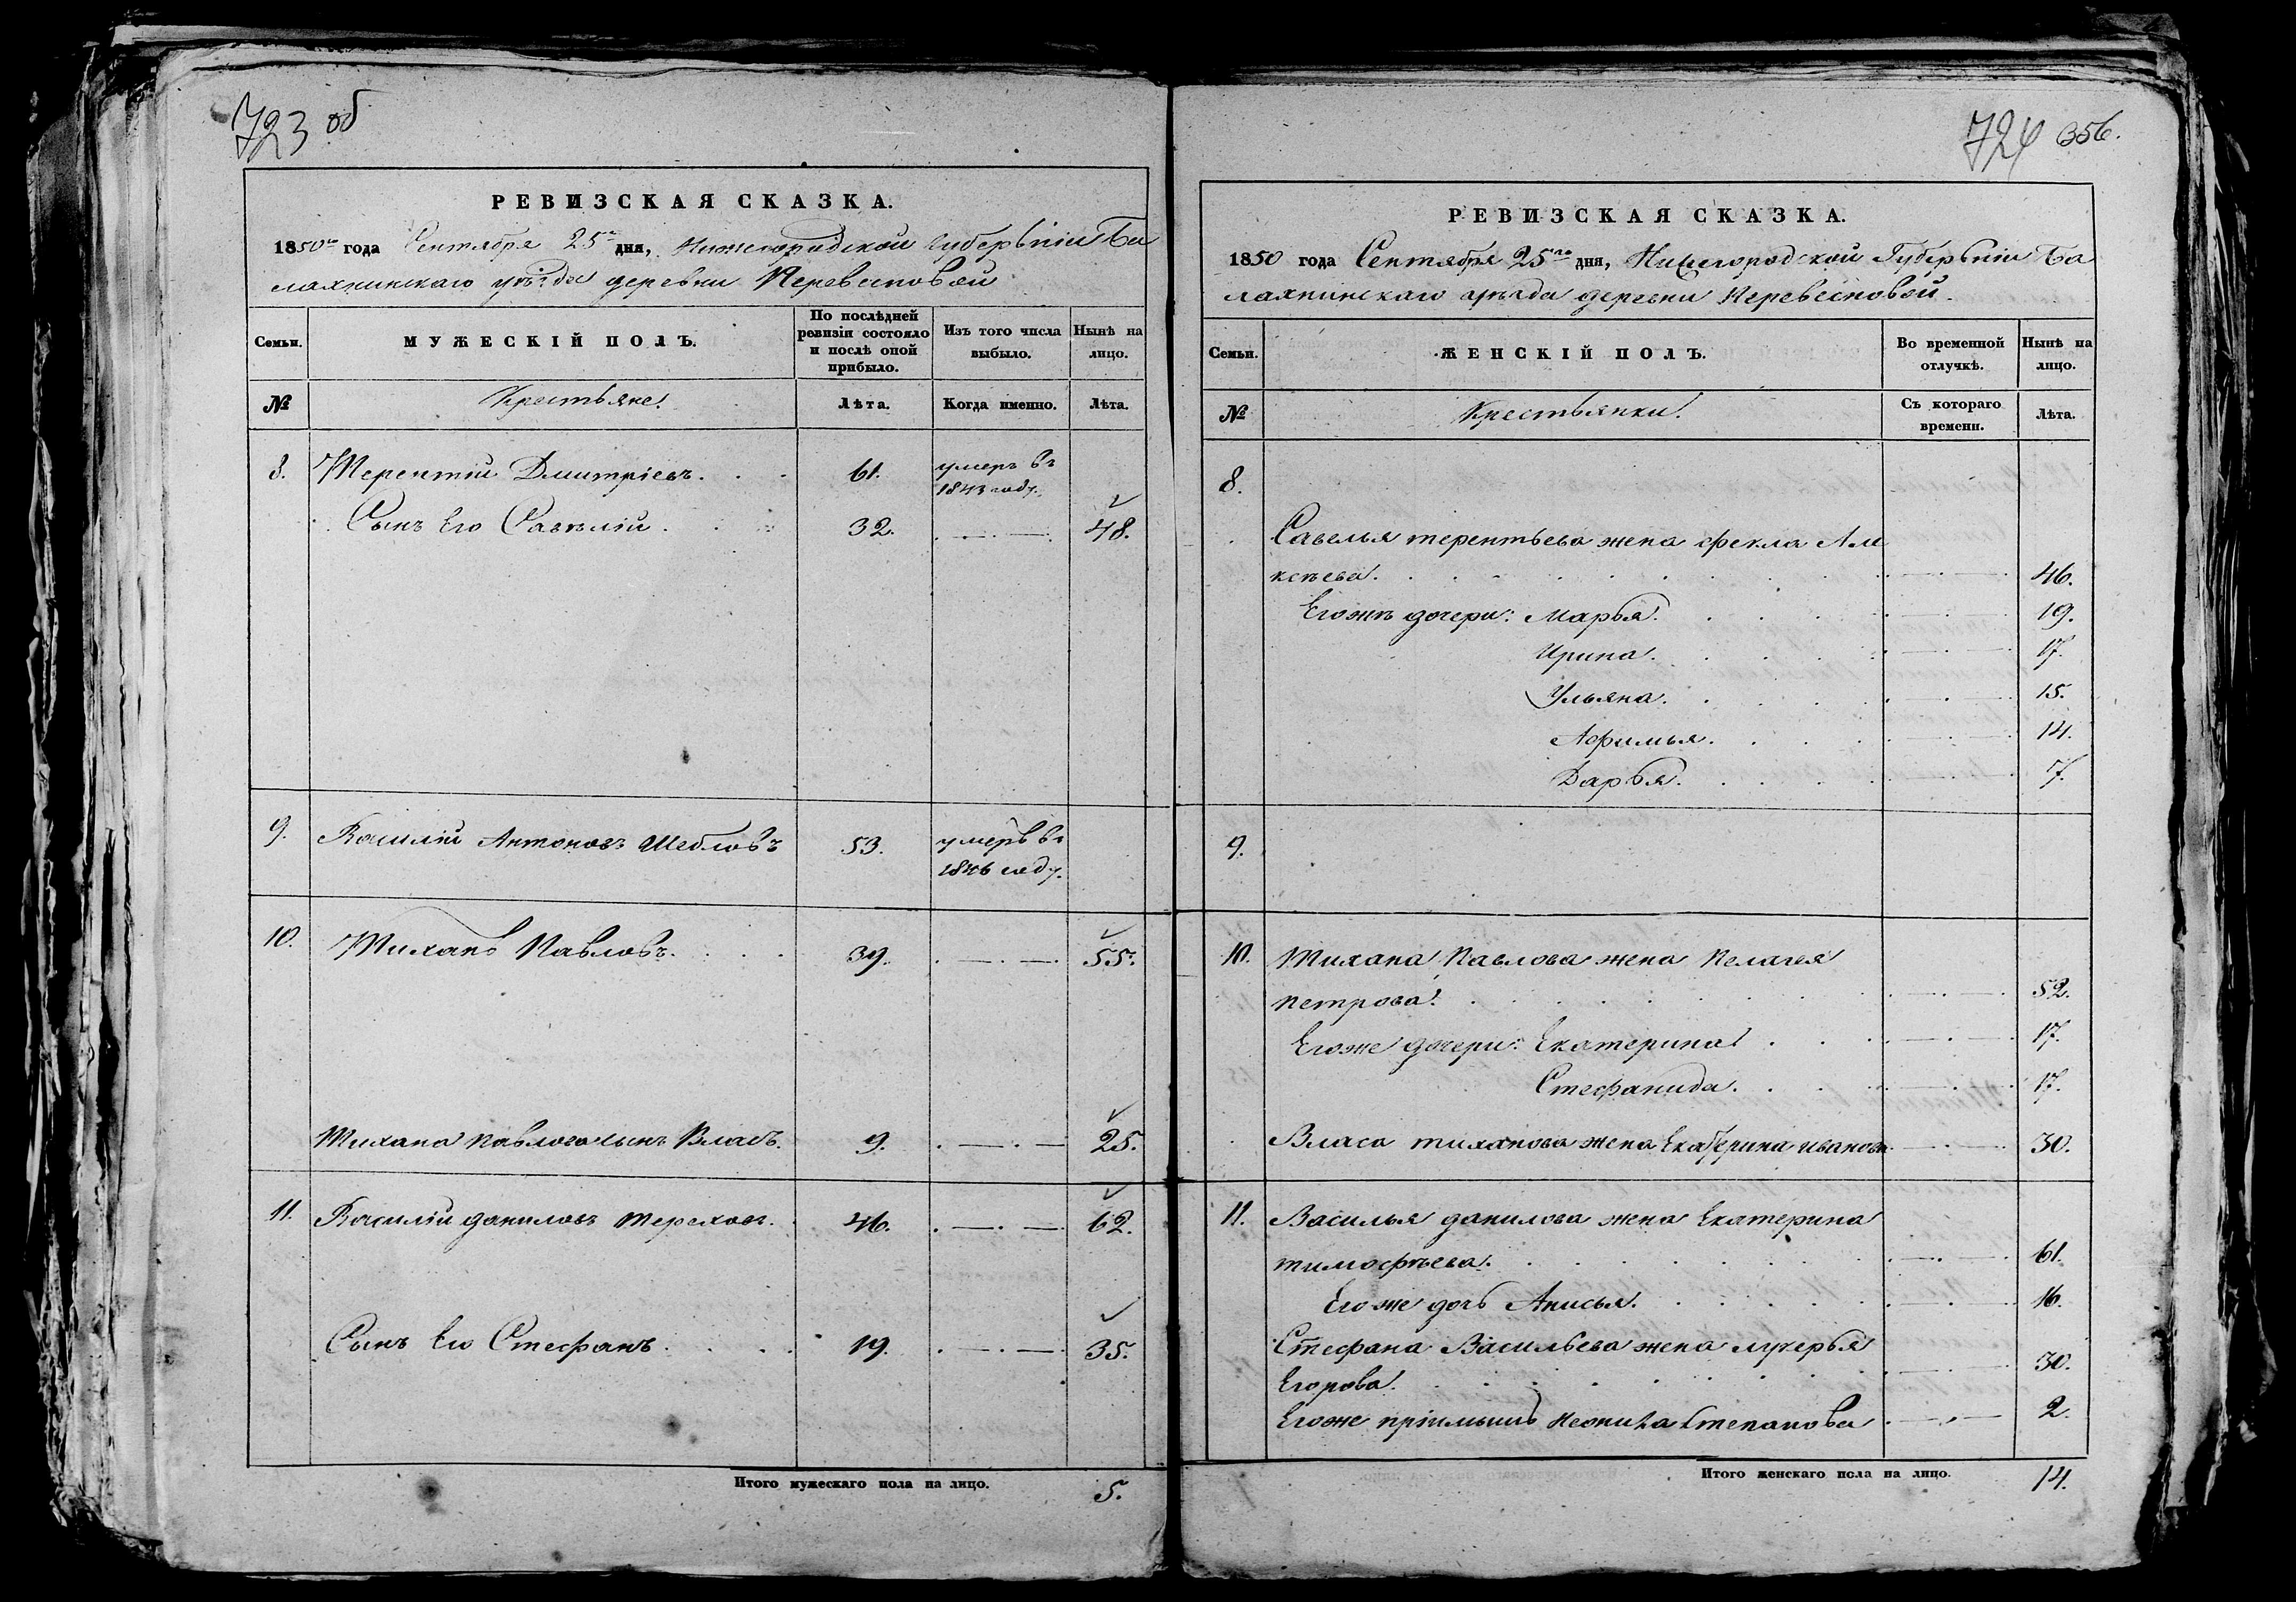 723 об
РЕВИЗСКАЯ СКАЗКА.
1850го года Сентября 25го дня, Нижегородской Губерьніи Ба
лахнинскаго уѣзда деревни Перевесновой
Семьи.
МУЖЕСКІЙ ПОЛЪ.
По послѣдней ревизіи состояло и послѣ оной прибыло.
Изъ того числа выбыло.
Нынѣ на лицо.
№
Крестьяне.
Лѣта.
Когда именно.
Лѣта.
8. Терентій Дмитріевъ. 61. умеръ въ
1843 году.
Сынъ Его Савелій. 32. 48.
9. Василій Антоновъ Шебловъ 53. умеръ въ
1846 году.
10. Тиханъ Павловъ. 39. 55.
Тихана Павлова сынъ Власъ. 9. 25.
11. Василій даниловъ тереховъ. 46. 62.
Сынъ Его Стефанъ. 19. 35.
Итого мужескаго пола на лицо. 5.
724 356.
РЕВИЗСКАЯ СКАЗКА.
1850 года Сентября 25го дня, Нижегородской Губерьніи Ба
лахнинскаго уѣзда деревни Перевесновой.
Семьи.
ЖЕНСКІЙ ПОЛЪ.
Во временной отлучкѣ.
Нынѣ на лицо.
№
Крестьянки.
Съ котораго времени.
Лѣта.
8.
Савелья терентьева жена фекла Але
ксѣева. 46.
Егожъ дочери: Марья. 19.
Ирина. 17.
Ульяна. 15.
Афимья. 14.
Дарья. 7.
9.
10. Тихана Павлова жена Пелагея
петрова. 52.
Егоже дочери: Екатерина 17.
Стефанида. 17.
Власа тиханова жена Екатерина иванова 30.
11. Василья данилова жена Екатерина
тимофѣева. 61.
Егоже дочь Анисья. 16.
Стефана Васильева жена лукерья
Егорова. 30.
Егоже пріимышъ Неонила Степанова 2.
Итого женскаго пола на лицо. 14.